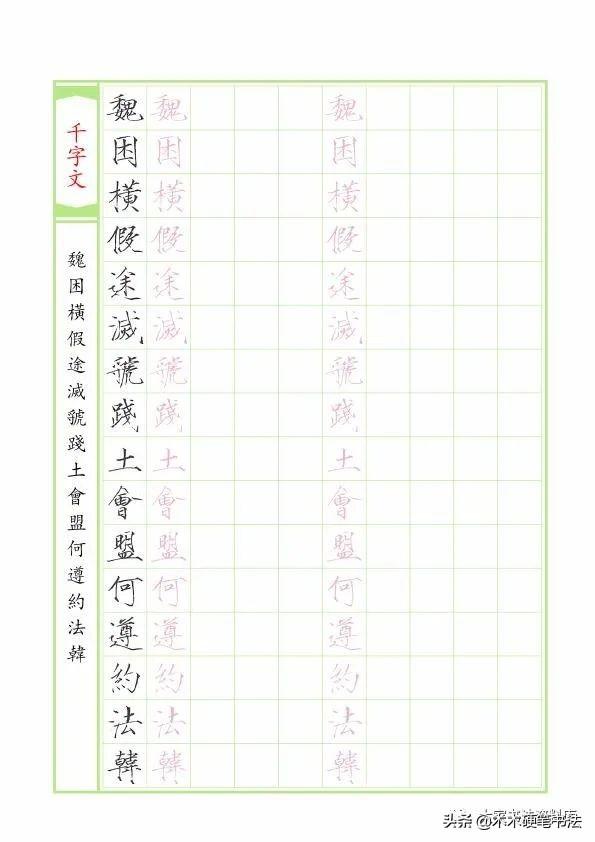 千字文
魏困橫假途滅虢踐土會盟何遵約法韓
魏 魏 魏
困 困 困
橫 橫 橫
假 假 假
途 途 途
滅 滅 滅
虢 虢 虢
踐 踐 踐
土 土 土
會 會 會
盟 盟 盟
何 何 何
遵 遵 遵
約 約 約
法 法 法
韓 韓 韓
头条 @木木硬笔书法